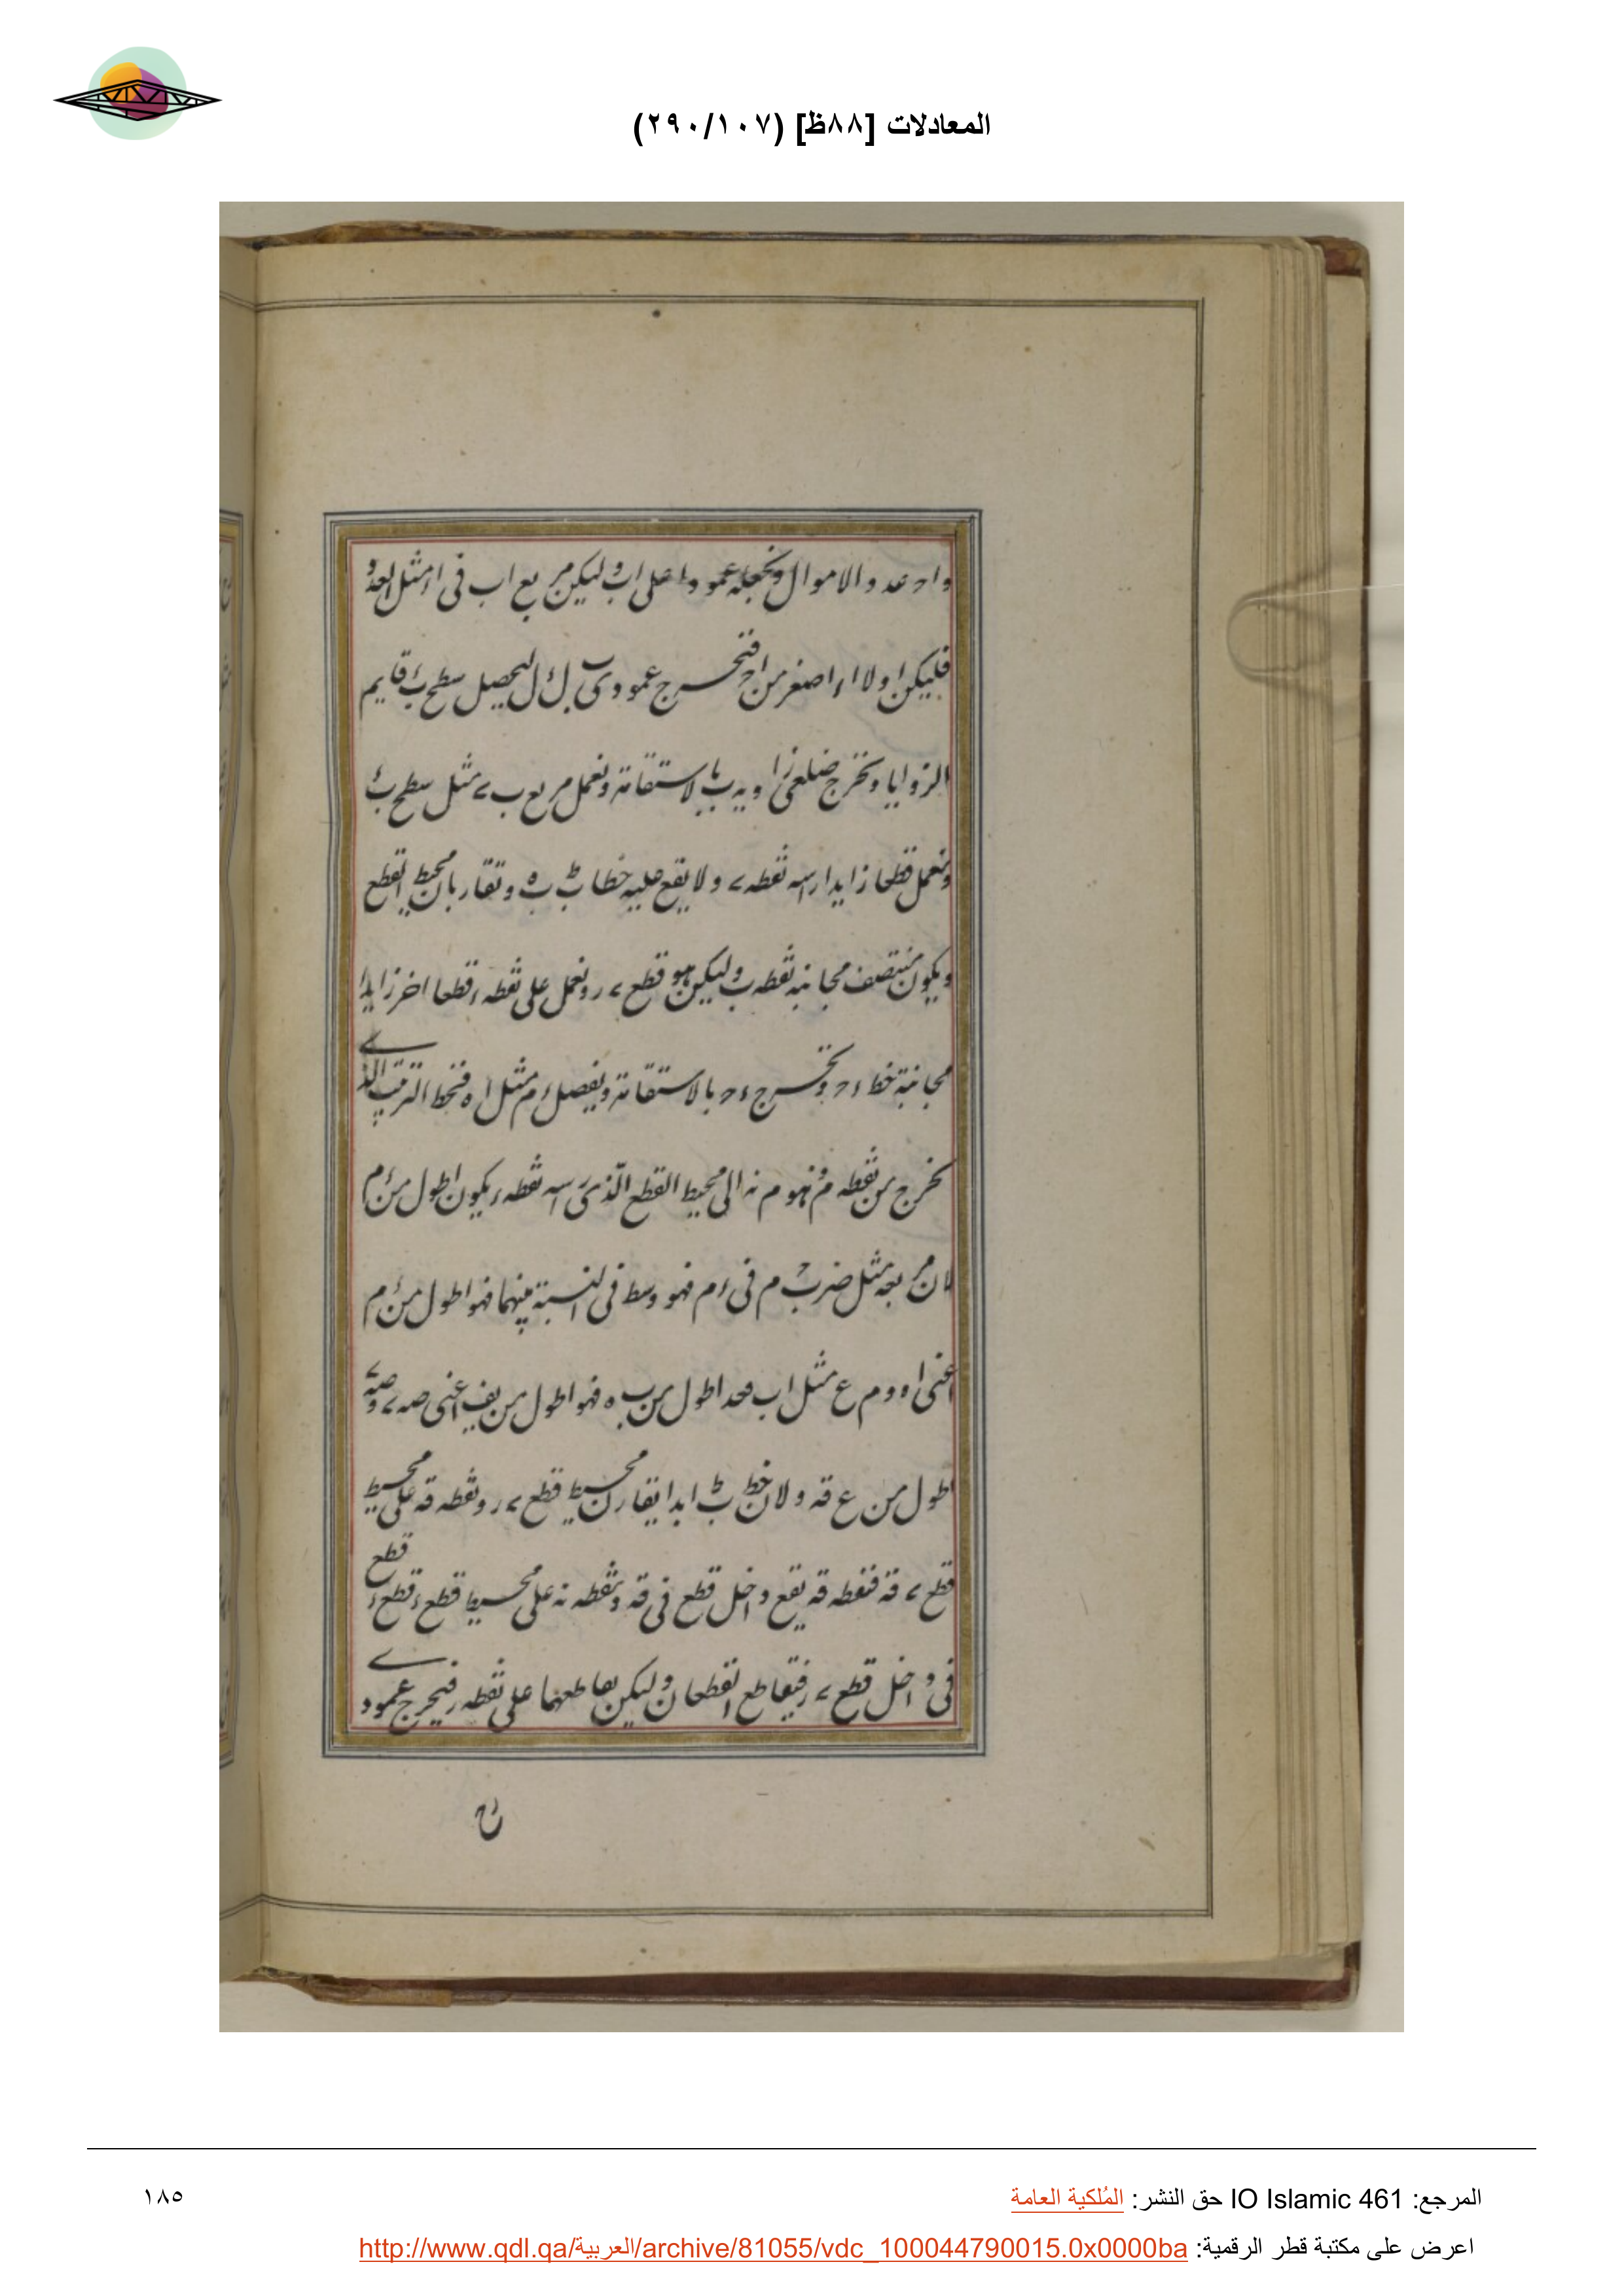 المعادلات [٨٨ظ] (٢٩٠/١٠٧)
واحد عدد والاموال ونجعله عمودا على اب وليكن مربع اب فى اء مثل العدد
فليكن اولا اء اصغر من اح فنخرج عمودى ب ك ء ل ليحصل سطح ب ء قايم
الزوايا ونخرج ضلعى زاويه ب بالاستقامة ونعمل مربع ب ے مثل سطح ب ء
ونعمل قطعا زايدا راسه نقطه ے ولا يقع عليه خطا ب ط ب ه وتقاربان محيط القطع
ويكون منتصف مجانبه نقطه ب وليكن هو قطع ے ر ونعمل على نقطه ء قطعا اخر زايدا
مجانبة خط ء ح ونخرج ء ح بالاستقامة ونفصل ء م مثل ا ه فنخط الترتيب الذے
نخرج من نقطه م وهو م نه الى محيط القطع الذى راسه نقطه ء يكون اطول من ء م
لان مربعه مثل ضرب ح م فى ء م فهو وسط فى النسبة بينهما فهو اطول من ء م
اعنى ا ه و م ع مثل اب اطول من ب ه فهو اطول من يف اعنى صه ے
اطول من ع قه ولان خط ب ط ابدا يقارب محيط قطع ے ر ونقطه قه على محيط
قطع ے قه فنقطه قه يقع داخل قطع فى قه ونقطه نه على محيط قطع ء قطع ء قطع
فى داخل قطع ے ر فيتقاطع القطعان وليكن تقاطعهما على نقطه ر فنخرج عمودے
المرجع: IO Islamic 461 حق النشر: المُلكية العامة
١٨٥
اعرض على مكتبة قطر الرقمية: http://www.qdl.qa/العربية/archive/81055/vdc_100044790015.0x0000ba